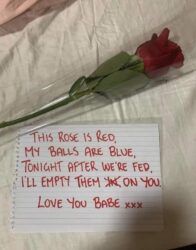 THIS ROSE IS RED,
MY BALLS ARE BLUE,
TONIGHT AFTER WE'RE FED,
I'LL EMPTY THEM ON YOU.
LOVE YOU BABE xxx